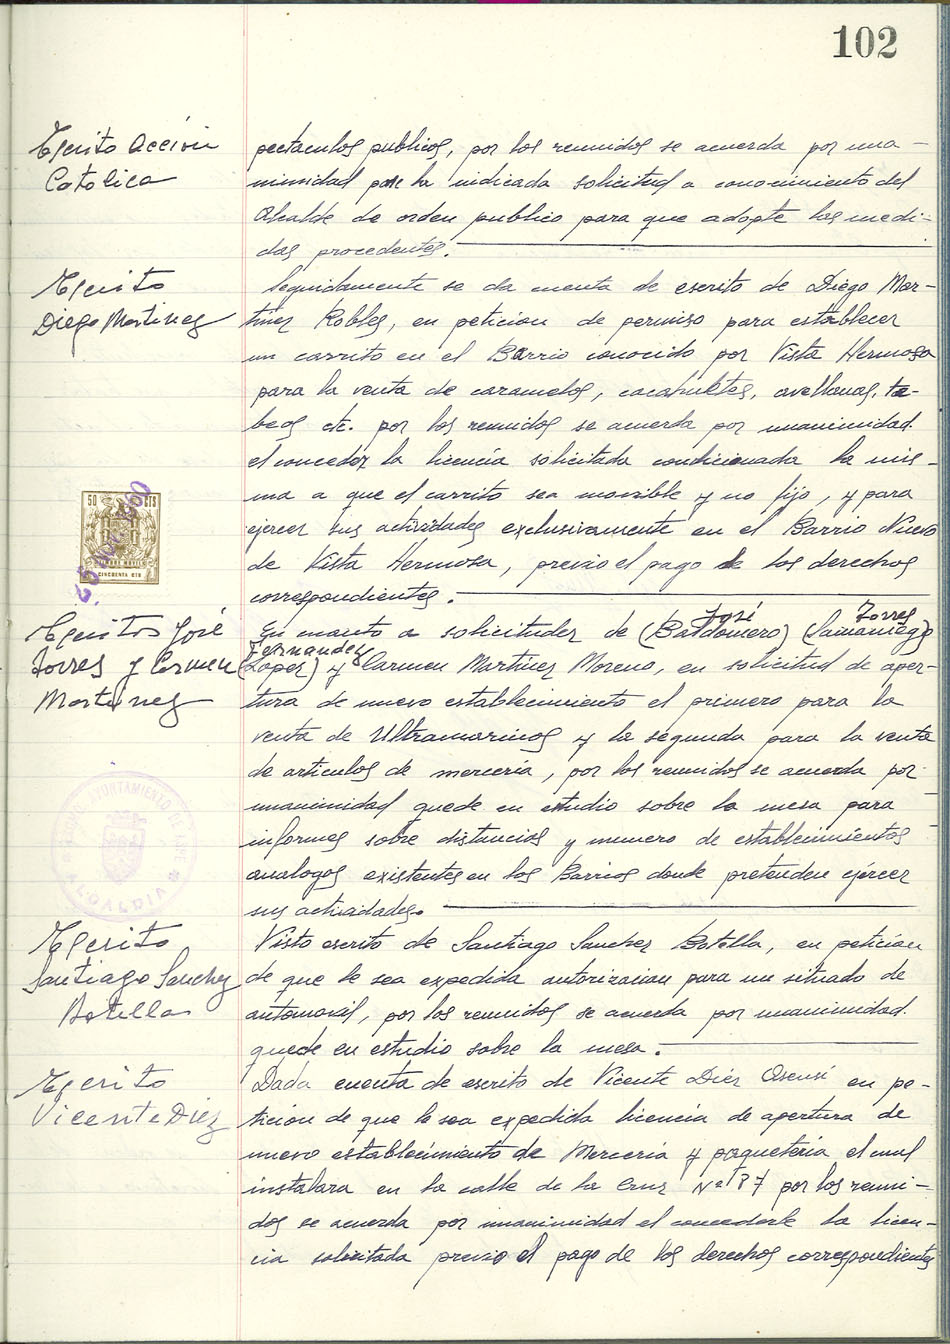 102
Escrito Acción
Catolica
pectaculos publicos, por los reunidos se acuerda por una-
nimidad pase la indicada solicitud a conocimiento del
Alcalde de orden publico para que adopte las medi-
das procedentes.
Escrito
Diego Martinez
Seguidamente se da cuenta de escrito de Diego Mar-
tinez Robles, en peticion de permiso para establecer
un carrito en el Barrio conocido por Vista Hermosa
para la venta de caramelos, cacahuetes, avellanas, ta-
beas etc. por los reunidos se acuerda por unanimidad
el conceder la licencia solicitada condicionada la mis-
ma a que el carrito sea movible y no fijo, y para
ejercer sus actividades exclusivamente en el Barrio Nuevo
de Vista Hermosa, previo el pago de los derechos
correspondientes.
50 CTS
CINCUENTA CTS
Escritos José
Torres y Carmen
Martinez
José Torres
En cuanto a solicitudes de (Baldomero) (Samaniego)
Fernandez
(Lopez) y Carmen Martinez Moreno, en solicitud de aper-
tura de nuevo establecimiento el primero para la
venta de Ultramarinos y la segunda para la venta
de articulos de merceria, por los reunidos se acuerda por
unanimidad quede en estudio sobre la mesa para
informes sobre distancias y numero de establecimientos
analogos existentes en los Barrios donde pretenden ejercer
sus actividades.
AYUNTAMIENTO DE ASPE
ALCALDIA
Escrito
Santiago Sanchez
Botella
Visto escrito de Santiago Sanchez Botella, en peticion
de que le sea expedida autorizacion para un situado de
automovil, por los reunidos se acuerda por unanimidad
quede en estudio sobre la mesa.
Escrito
Vicente Diez
Dada cuenta de escrito de Vicente Diez Asensi en pe-
ticion de que le sea expedida licencia de apertura de
nuevo establecimiento de Merceria y paqueteria el cual
instalara en la calle de la Cruz Nº 87 por los reuni-
dos se acuerda por unanimidad el concederle la licen-
cia solicitada previo el pago de los derechos correspondientes